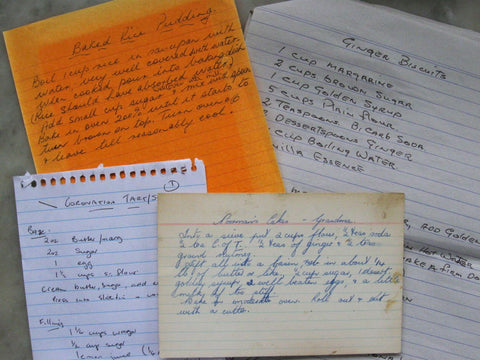 Baked Rice Pudding.
Boil 1 cup rice in saucepan with
water, very well covered with water.
When cooked pour into baking dish
(Rice should have absorbed water)
Add small cup sugar & mix and
Bake in oven 200°C until it starts to
turn brown on top. Turn oven off
& leave till reasonably cool.
GINGER BISCUITS
1 CUP MARGARINE
2 CUPS BROWN SUGAR
1 CUP GOLDEN SYRUP
5 CUPS PLAIN FLOUR
2 TEASPOONS B. CARB SODA
DESSERTSPOONS GINGER
CUP BOILING WATER
ESSENCE
ADD GOLDEN
HOT WATER
MAKE A FIRM DO
1
CORONATION TART/S
Base:
2oz Butter/marg
2oz Sugar
1 egg
1 1/2 cups s. flour
cream butter, sugar, add
Press into
Filling
1 1/2 cups
1/2 cup
Lemon juice (1
Cake - Grandma.
Into a sieve put 2 cups flour, 1/2 teas soda
1/2 tea C. of T. 1/2 teas of ginger & 1/2 teas
ground nutmeg.
Sift all into a basin, rub in about 1/4
lb of butter or lard, 1/2 cup sugar, 1 dessert
golden syrup, 2 well beaten eggs, & a little
milk if too stiff.
Bake in moderate oven. Roll out & cut
with a cutter.